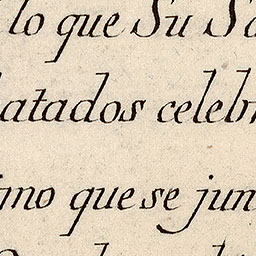 lo que Su Sa
atados celebr
mo que se jun